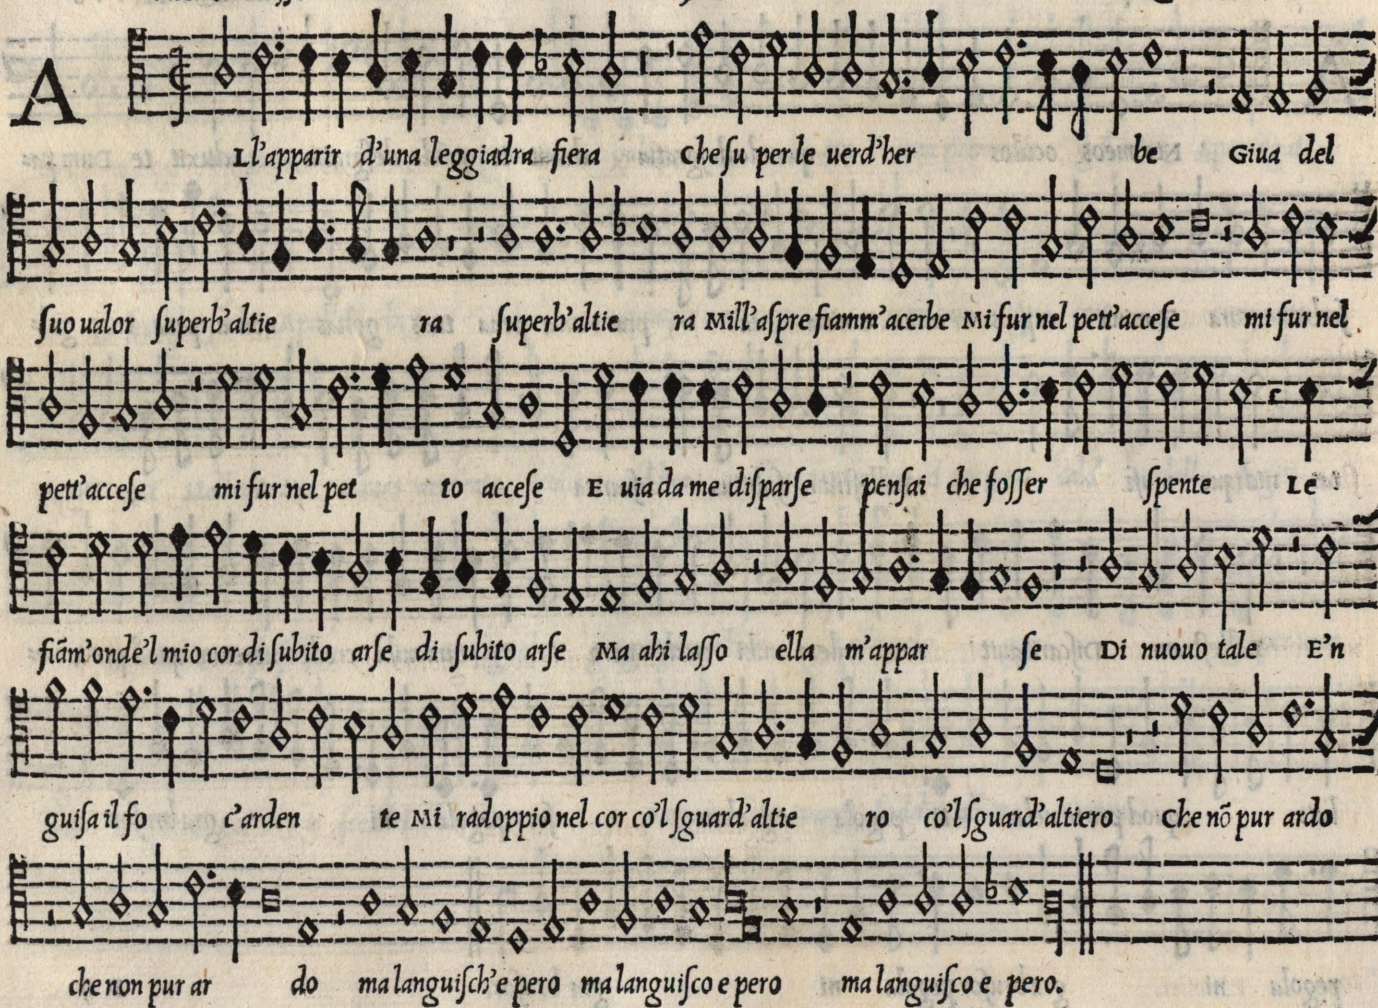 A
Ll'apparir d'una leggiadra fiera Che ſu per le uerd'her be Giua del
ſuo ualor ſuperb'altie ra ſuperb'altie ra Mill'aſpre fiamm'acerbe Mi fur nel pett'acceſe mi fur nel
pett'acceſe mi fur nel pet to acceſe E uia da me diſparſe penſai che foſſer ſpente Le
fiãm'onde'l mio cor di ſubito arſe di ſubito arſe Ma ahi laſſo ella m'appar ſe Di nuouo tale E'n
guiſa il fo c'arden te Mi radoppio nel cor co'l ſguard'altie ro co'l ſguard'altiero Che nõ pur ardo
che non pur ar do ma languiſch'e pero ma languiſco e pero ma languiſco e pero.